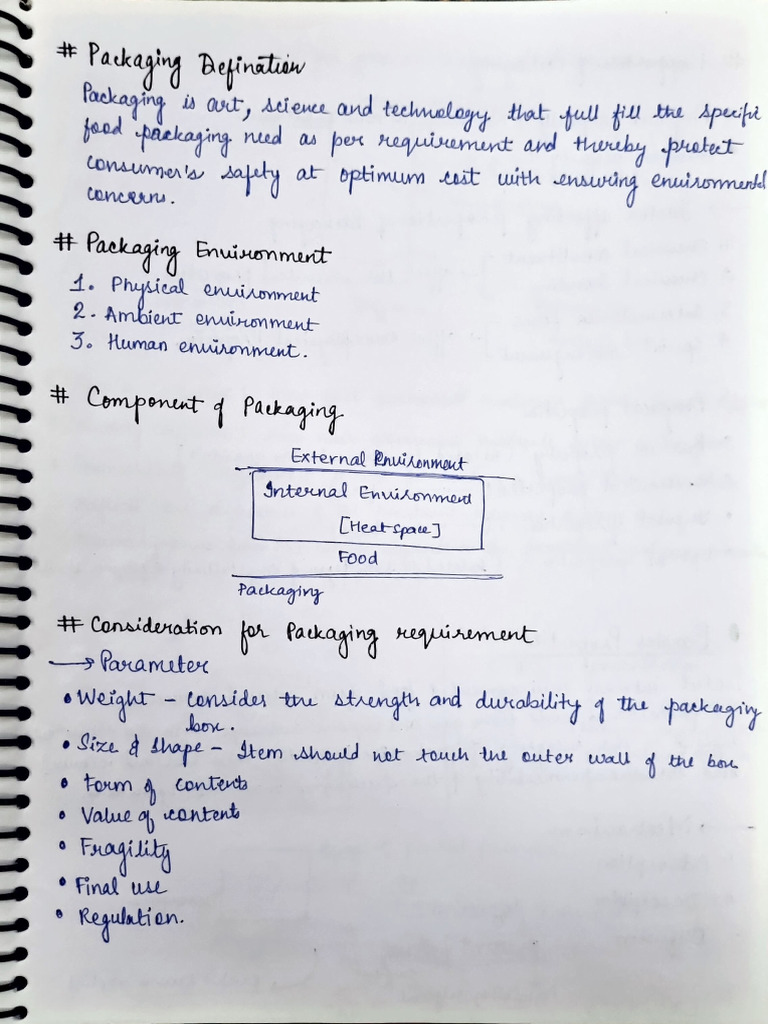 # Packaging Defination
Packaging is art, science and technology that full fill the specific
food packaging need as per requirement and thereby protect
consumer's safety at optimum cost with ensuring environmental
concerns.
# Packaging Environment
1. Physical environment
2. Ambient environment
3. Human environment.
# Component of Packaging
External Environment
Internal Environment
[Heatspace]
Food
Packaging
# Consideration for Packaging requirement
→ Parameter
• Weight – consider the strength and durability of the packaging
box.
• Size & Shape – Item should not touch the outer wall of the box.
• Form of contents
• Value of contents
• Fragility
• Final use
• Regulation.